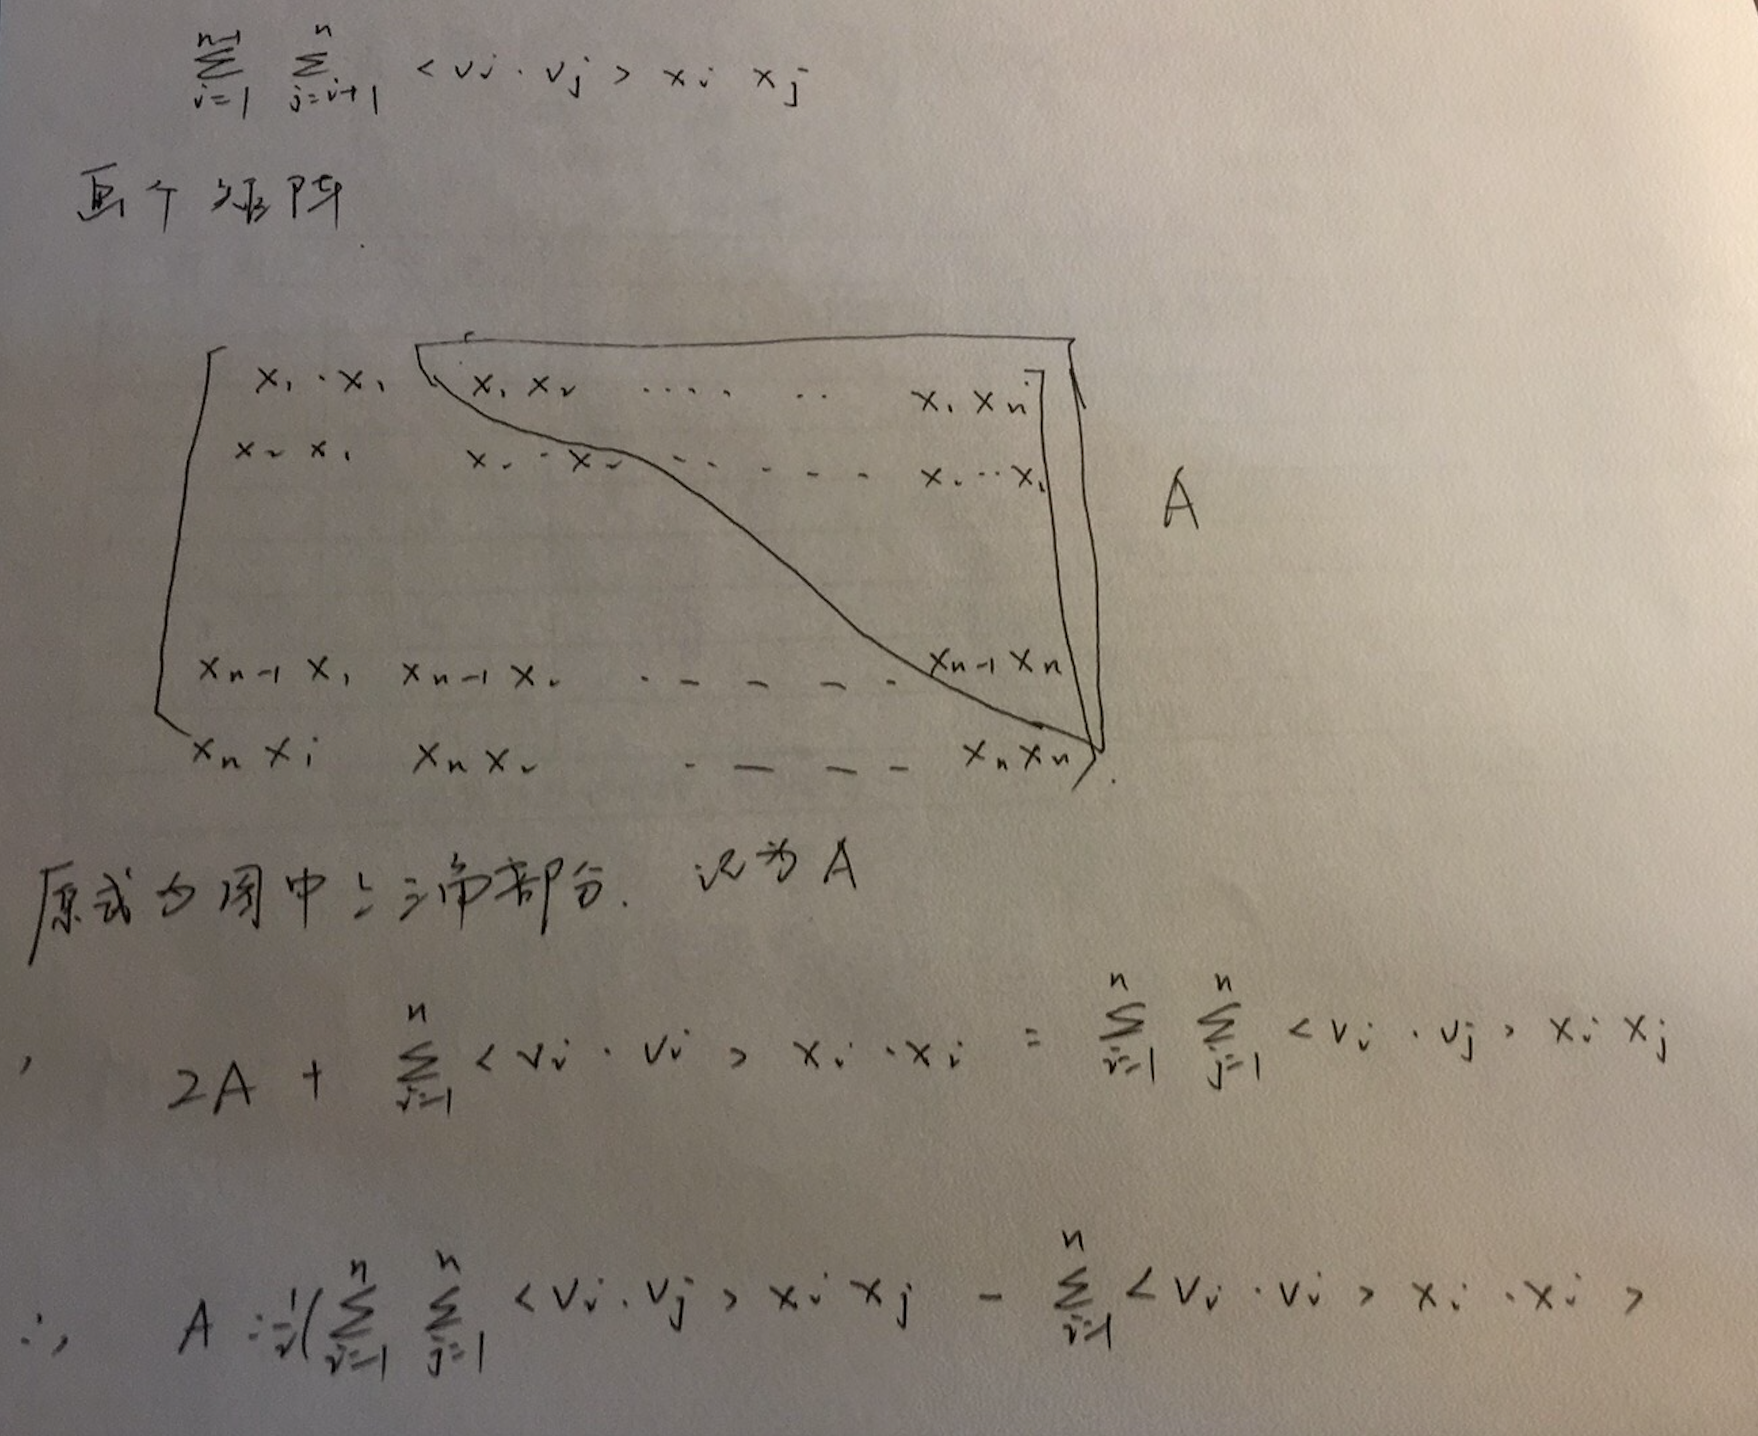 ∑_{i=1}^{n-1} ∑_{j=i+1}^{n} <vi · vj> xi xj
画个矩阵.
x1 · x1 x1 x2 ···· ·· x1 xn
x2 x1 x2 · x2 -- - - - - x2 ·· x
A
xn-1 x1 xn-1 x2 · - - - · xn-1 xn
xn xi xn x2 - — - - xn xn
原式为图中上三角部分. 记为 A
2A + ∑_{i=1}^{n} <vi · vi> xi · xi = ∑_{i=1}^{n} ∑_{j=1}^{n} <vi · vj> xi xj
∴, A = 1/2 (∑_{i=1}^{n} ∑_{j=1}^{n} <vi . vj> xi xj - ∑_{i=1}^{n} <vi · vi> xi · xi >